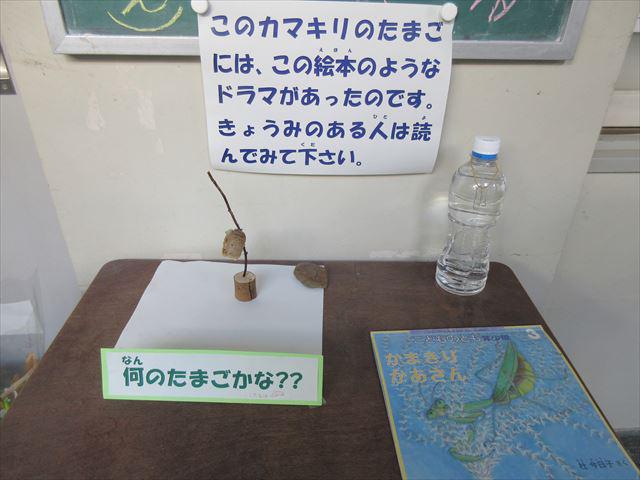 このカマキリのたまご
えほん
には、この絵本のような
ドラマがあったのです。
ひと よ
きょうみのある人は読
くだ
んでみて下さい。
なん
何のたまごかな??
かまきり
かあさん
3